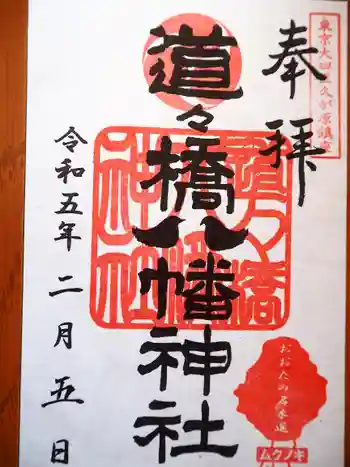 東京大田区久が原鎮座
奉拝
道々橋八幡神社
道々橋八幡神社
令和五年二月五日
おおたの名木選
ムクノキ